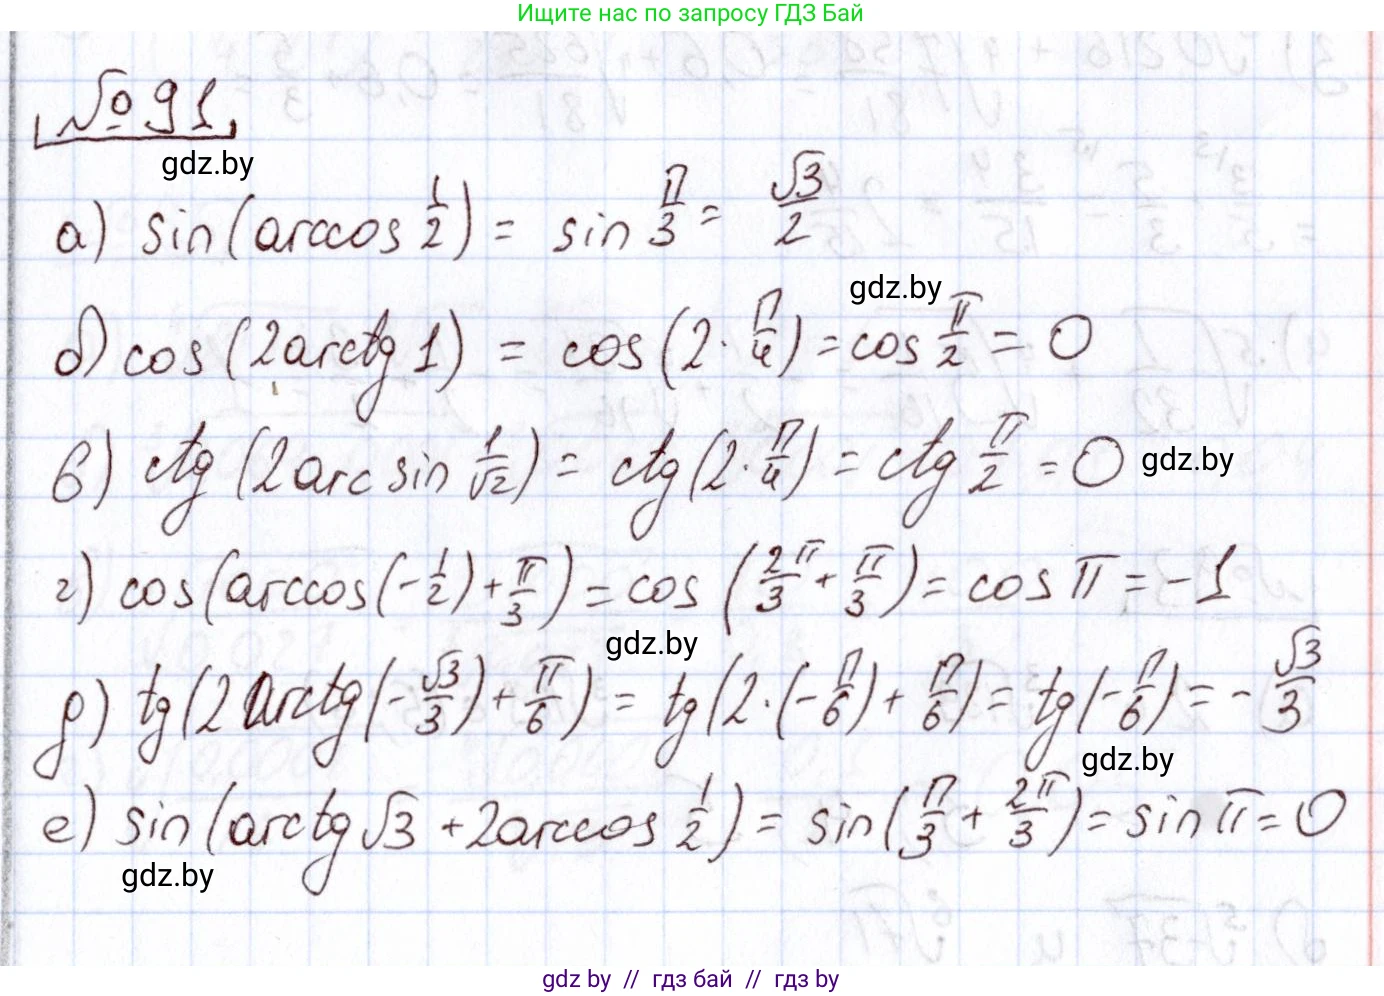 Ищите нас по запросу ГДЗ Бай
№ 91
gdz.by
а) sin(arccos 1/2) = sin π/3 = √3/2
gdz.by
б) cos(2arctg 1) = cos(2·π/4) = cos π/2 = 0
в) ctg(2arcsin 1/√2) = ctg(2·π/4) = ctg π/2 = 0
gdz.by
г) cos(arccos(-1/2) + π/3) = cos(2π/3 + π/3) = cos π = -1
gdz.by
д) tg(2arctg(-√3/3) + π/6) = tg(2·(-π/6) + π/6) = tg(-π/6) = -√3/3
gdz.by
е) sin(arctg √3 + 2arccos 1/2) = sin(π/3 + 2π/3) = sin π = 0
gdz.by
gdz by // гдз бай // гдз by